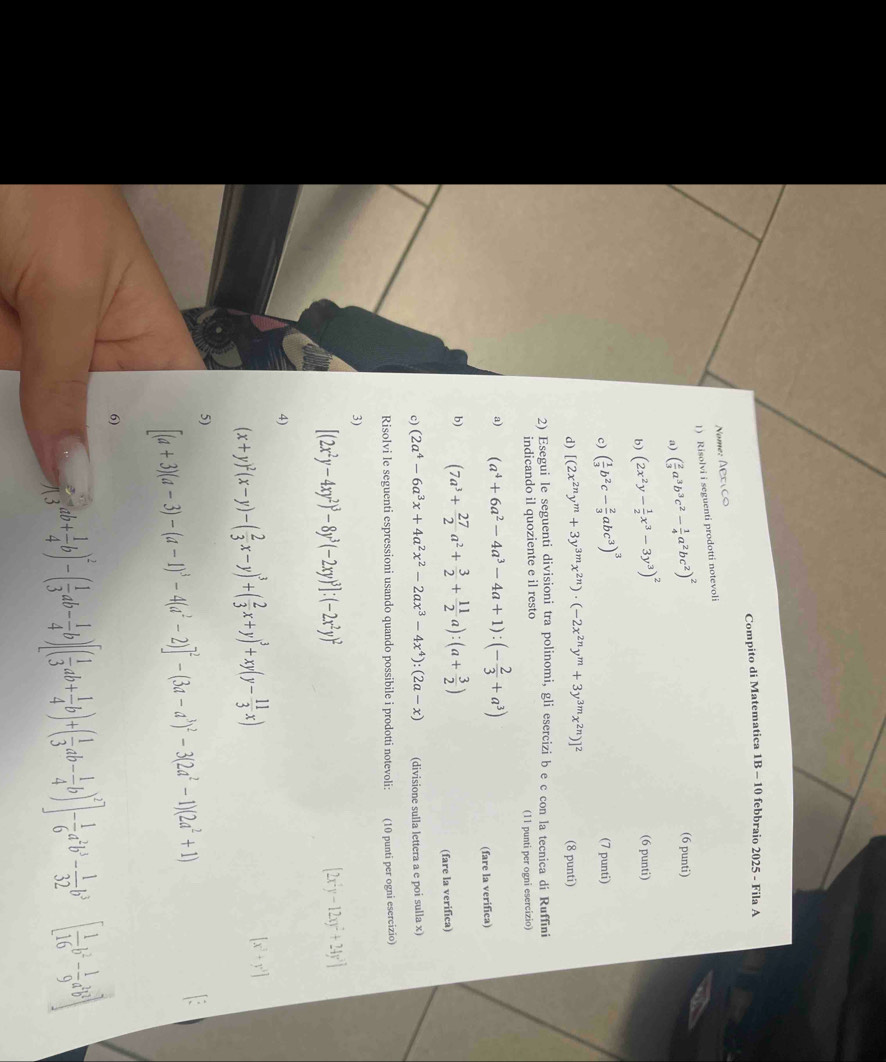 Compito di Matematica 1B – 10 febbraio 2025 - Fila A
Nome:
1) Risolvi i seguenti prodotti notevoli
a) (2/3 a³b³c² − 1/4 a²bc²)² (6 punti)
b) (2x²y − 1/2 x³ − 3y³)² (6 punti)
c) (1/3 b²c − 2/3 abc³)³ (7 punti)
d) [(2x²ⁿyᵐ + 3y³ᵐx²ⁿ) · (−2x²ⁿyᵐ + 3y³ᵐx²ⁿ)]² (8 punti)
2) Esegui le seguenti divisioni tra polinomi, gli esercizi b e c con la tecnica di Ruffini
indicando il quoziente e il resto (11 punti per ogni esercizio)
a) (a⁴ + 6a² − 4a³ − 4a + 1) : (−2/3 + a³) (fare la verifica)
b) (7a³ + 27/2 a² + 3/2 + 11/2 a) : (a + 3/2) (fare la verifica)
c) (2a⁴ − 6a³x + 4a²x² − 2ax³ − 4x⁴) : (2a − x) (divisione sulla lettera a e poi sulla x)
Risolvi le seguenti espressioni usando quando possibile i prodotti notevoli: (10 punti per ogni esercizio)
3)
[(2x²y − 4xy²)³ − 8y³(−2xy)³] : (−2x²y)²
4)
(x + y)²(x − y) − (2/3 x − y)³ + (2/3 x + y)³ + xy(y − 11/3 x) [x³ + y³]
5)
[(a + 3)(a − 3) − (a − 1)³ − 4(a² − 2)]² − (3a − a³)² − 3(2a² − 1)(2a² + 1)
6)
ab + 1/4 b)² − (1/3 ab − 1/4 b)[(1/3 ab + 1/4 b) + (1/3 ab − 1/4 b)²] − 1/6 a²b³ − 1/32 b³ [1/16 b² − 1/9 a²b²]